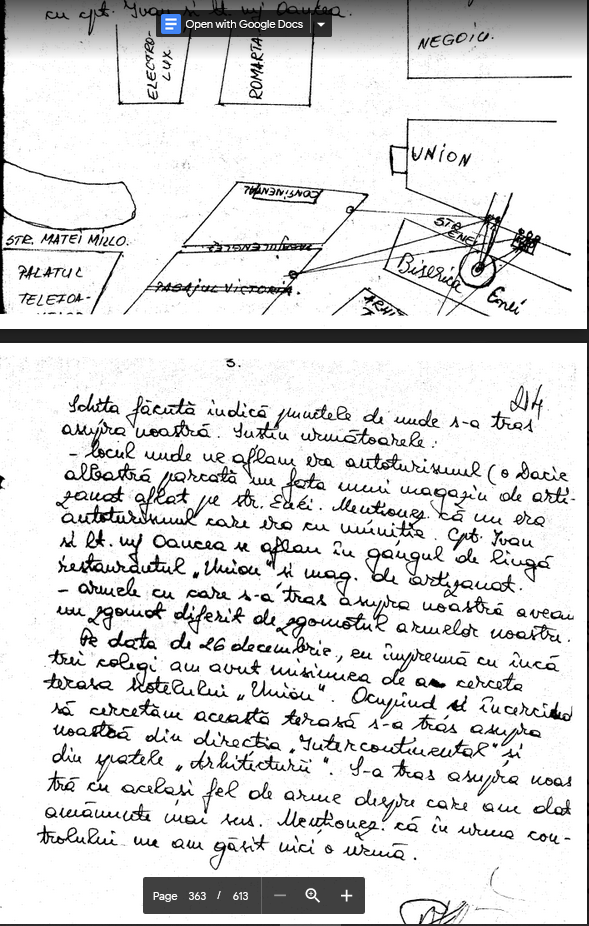 cu cpt. Ivan și lt. mj Oancea.
Open with Google Docs
ELECTRO-
LUX
ROMARTA
NEGOIU.
UNION
CONTINENTAL
STR. MATEI MILLO.
PASAJUL ENGLEZ
STR.
ENEI
PALATUL
TELEFOA-
PASAJUL VICTORIA.
Biserica
Enei
ARHI
3.
214
Schița făcută indică punctele de unde s-a tras
asupra noastră. Susțin următoarele:
- locul unde ne aflam era autoturismul (o Dacie
albastră parcată în fața unui magazin de arti-
zanat aflat pe str. Enei. Menționez că nu era
autoturismul care era cu muniția. Cpt. Ivan
și lt. mj Oancea se aflau în gangul de lîngă
restaurantul „Union" și mag. de artizanat.
- armele cu care s-a tras asupra noastră aveau
un zgomot diferit de zgomotul armelor noastre.
Pe data de 26 decembrie, eu împreună cu încă
trei colegi am avut misiunea de a cerceta
terasa hotelului „Union". Ocupînd și încercînd
să cercetăm această terasă s-a tras asupra
noastră din direcția „Intercontinental" și
din spatele „Arhitecturii". S-a tras asupra noas
tră cu același fel de arme despre care am dat
amănunte mai sus. Menționez că în urma con-
trolului nu am găsit nici o urmă.
Page 363 / 613